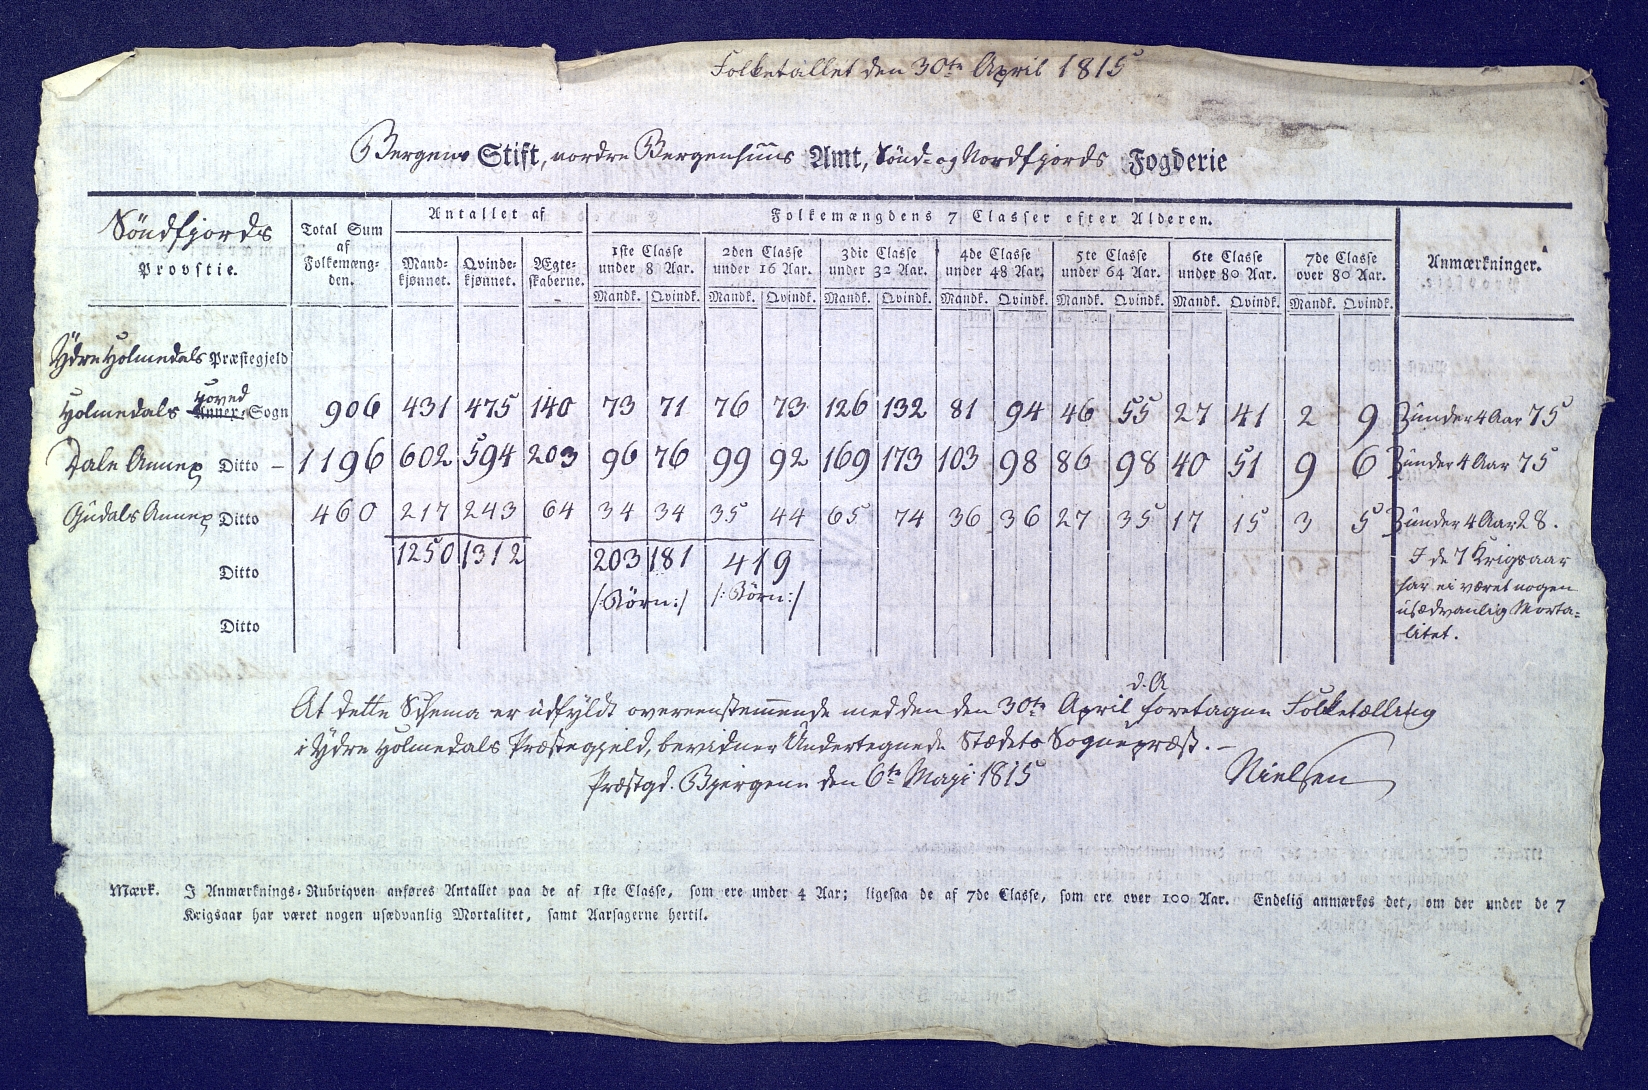 Folketallet den 30te April 1815
Bergens Stift, nordre Bergenhuus Amt, Sönd- og Nordfjords Fogderie
Söndfjords Provstie. Total Sum af Folkemængden. Antallet af Folkemængdens 7 Classer efter Alderen. Anmærkninger.
Mandkjønnet. Qvindekjønnet. Ægteskaberne. 1ste Classe under 8 Aar. 2den Classe under 16 Aar. 3die Classe under 32 Aar. 4de Classe under 48 Aar. 5te Classe under 64 Aar. 6te Classe under 80 Aar. 7de Classe over 80 Aar.
Mandk. Qvindk. Mandk. Qvindk. Mandk. Qvindk. Mandk. Qvindk. Mandk. Qvindk. Mandk. Qvindk. Mandk. Qvindk.
Ydre Holmedals Præstegjeld
Holmedals Hoved Annex-Sogn 906 431 475 140 73 71 76 73 126 132 81 94 46 55 27 41 2 9 under 4 Aar 75
Dale Annex Ditto – 1196 602 594 203 96 76 99 92 169 173 103 98 86 98 40 51 9 6 under 4 Aar 75
Gudals Annex Ditto 460 217 243 64 34 34 35 44 65 74 36 36 27 35 17 15 3 5 under 4 Aar 28.
Ditto 1250 1312 203 181 419 I de 7 Krigsaar
/:Börn:/ /:Börn:/ har ei været nogen
usædvanlig Morta-
Ditto litet.
d. A
At dette Schema er udfyldt overeenstemmende med den den 30te April foretagne Folketælling
i Ydre Holmedals Præstegjeld, bevidner Undertegnede Stædets Sognepræst. –
Præstgd. Bjergene den 6te Maji 1815 Nielsen
Mærk. I Anmærknings-Rubriqven anføres Antallet paa de af 1ste Classe, som ere under 4 Aar; ligesaa de af 7de Classe, som ere over 100 Aar. Endelig anmærkes det, om der under de 7
Krigsaar har været nogen usædvanlig Mortalitet, samt Aarsagerne hertil.